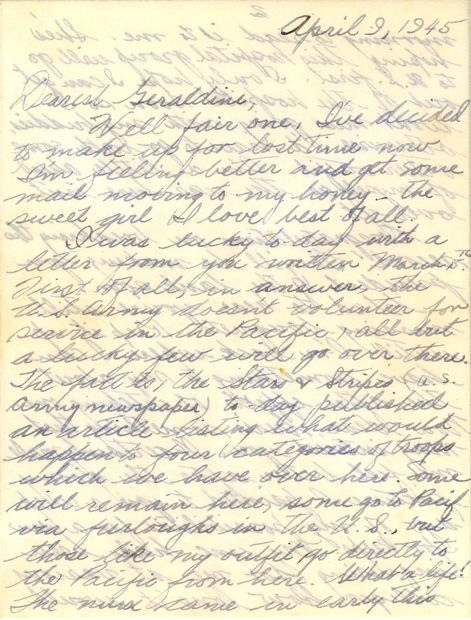 April 9, 1945
Dearest Geraldine,
Well fair one, I've decided
to make up for lost time now
I'm feeling better and get some
mail moving to my honey - the
sweet girl I love best of all.
I was lucky to-day with a
letter from you written March
First of all, in answer, the
U.S. Army doesn't volunteer for
service in the Pacific, all but
a lucky few will go over there.
The fact is, the Stars & Stripes (U.S.
Army newspaper) to-day published
an article listing what would
happen to four categories of troops
which we have over here. Some
will remain here, some go to Pacif
via furloughs in the U.S., but
those like my outfit, go directly to
the Pacific from here. What a life!
The nurse came in early this